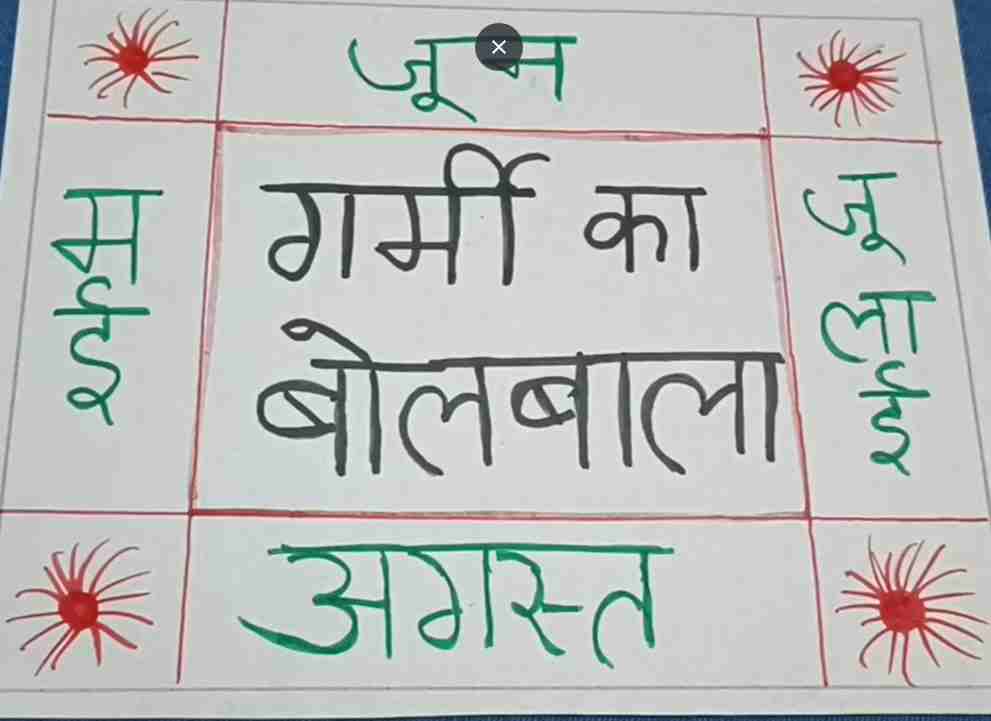 जून
गर्मी का
बोलबाला
मई
जुलाई
अगस्त